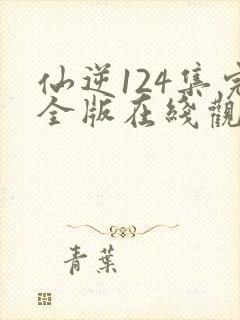 仙逆124集完
全版在綫觀
青葉